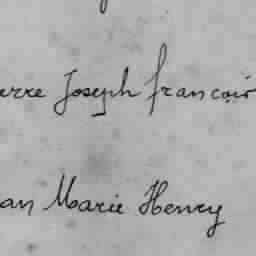 erre Joseph francois
an Marie Henry